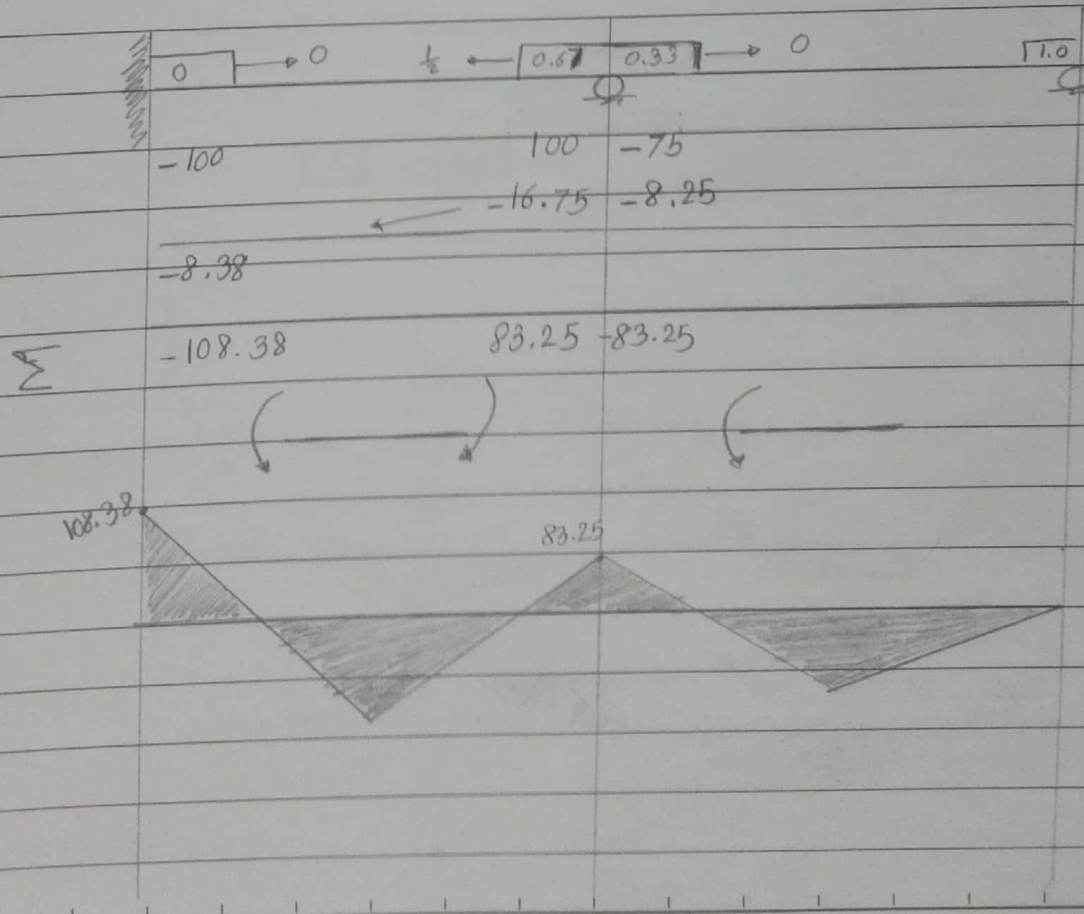 0 0 ½ 0.67 0.33 0 1.0
-100 100 -75
-16.75 -8.25
-8.38
Σ -108.38 83.25 -83.25
108.38
83.25